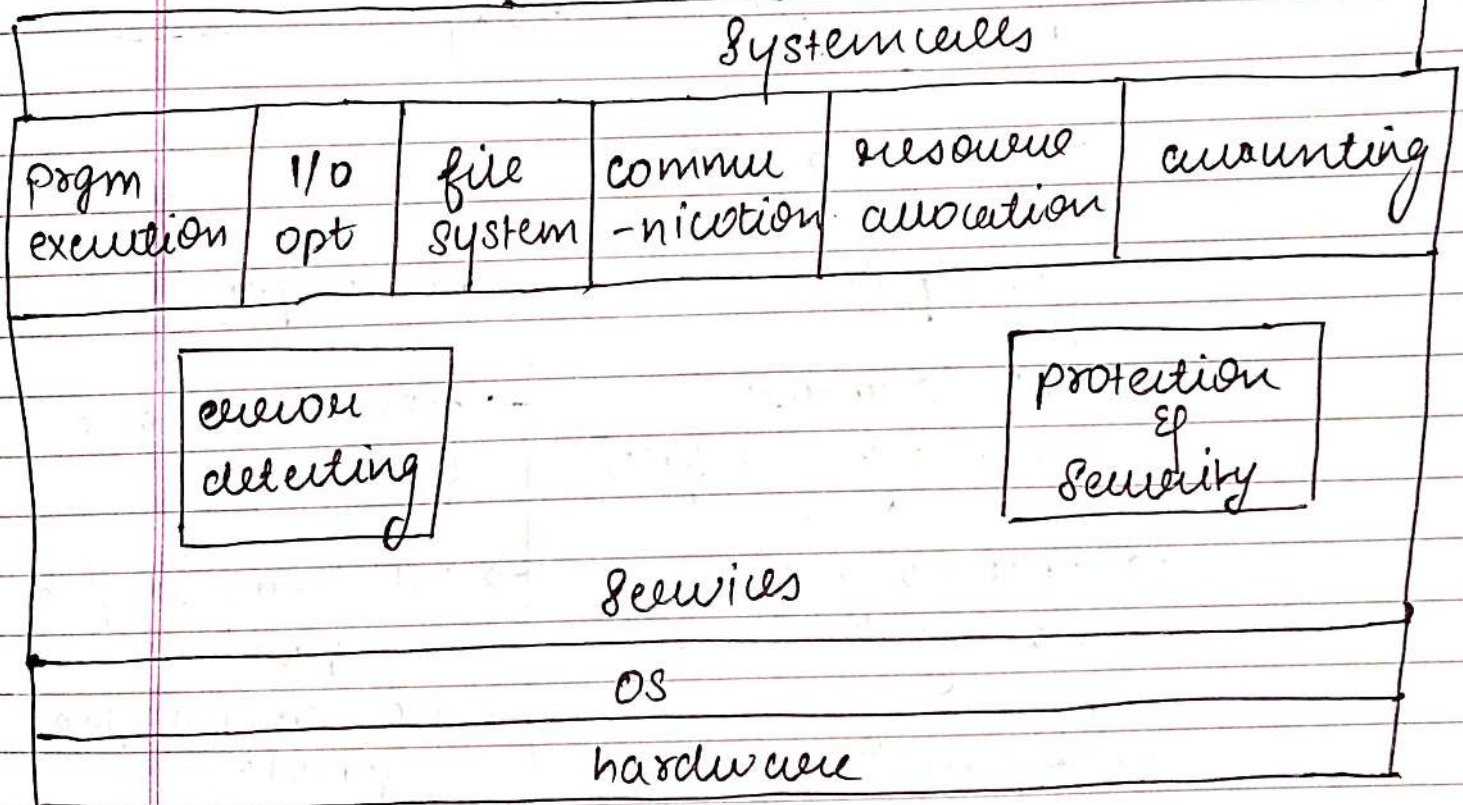 Systemcalls
prgm
execution
I/O
opt
file
system
commu
-nication
resource
allocation
accounting
error
detecting
protection
&
Security
Services
OS
hardware